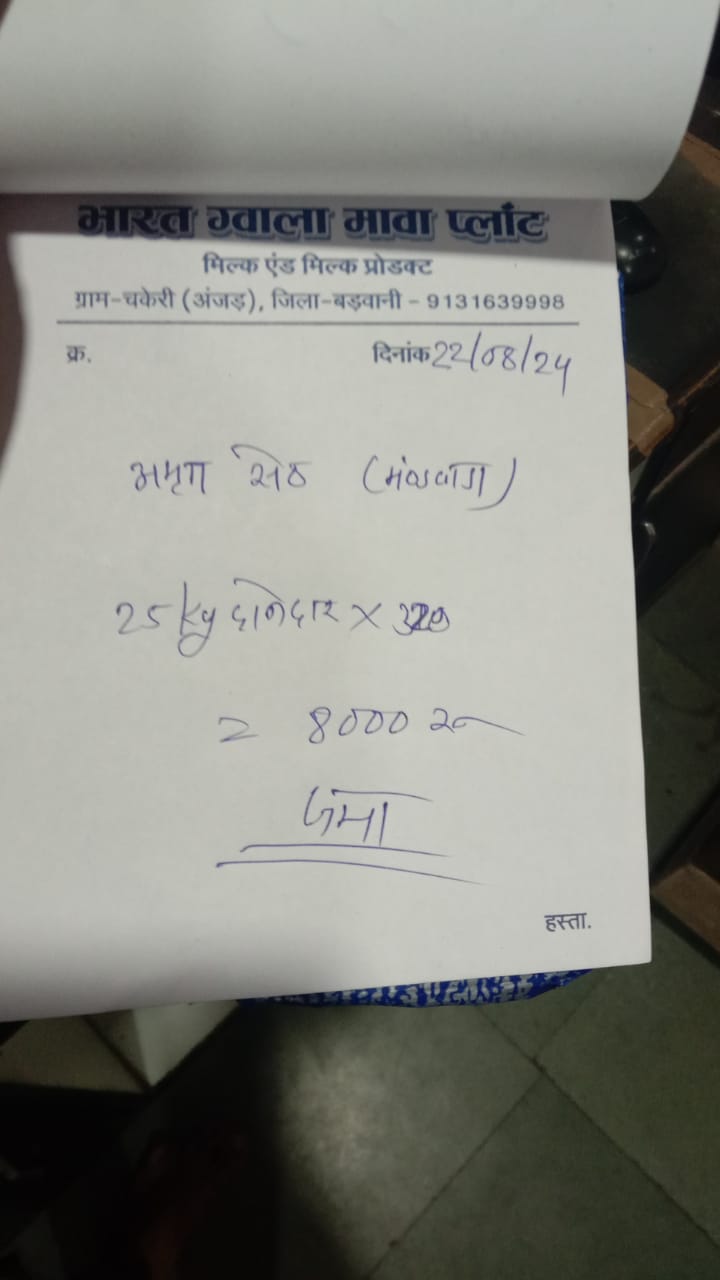 भारत ग्वाला मावा प्लांट
मिल्क एंड मिल्क प्रोडक्ट
ग्राम-चकेरी (अंजड़), जिला-बड़वानी - 9131639998
क्र. दिनांक 22/08/24
अमृत सेठ
25 kg दानेदार × 320
= 8000 रु
जमा
हस्ता.